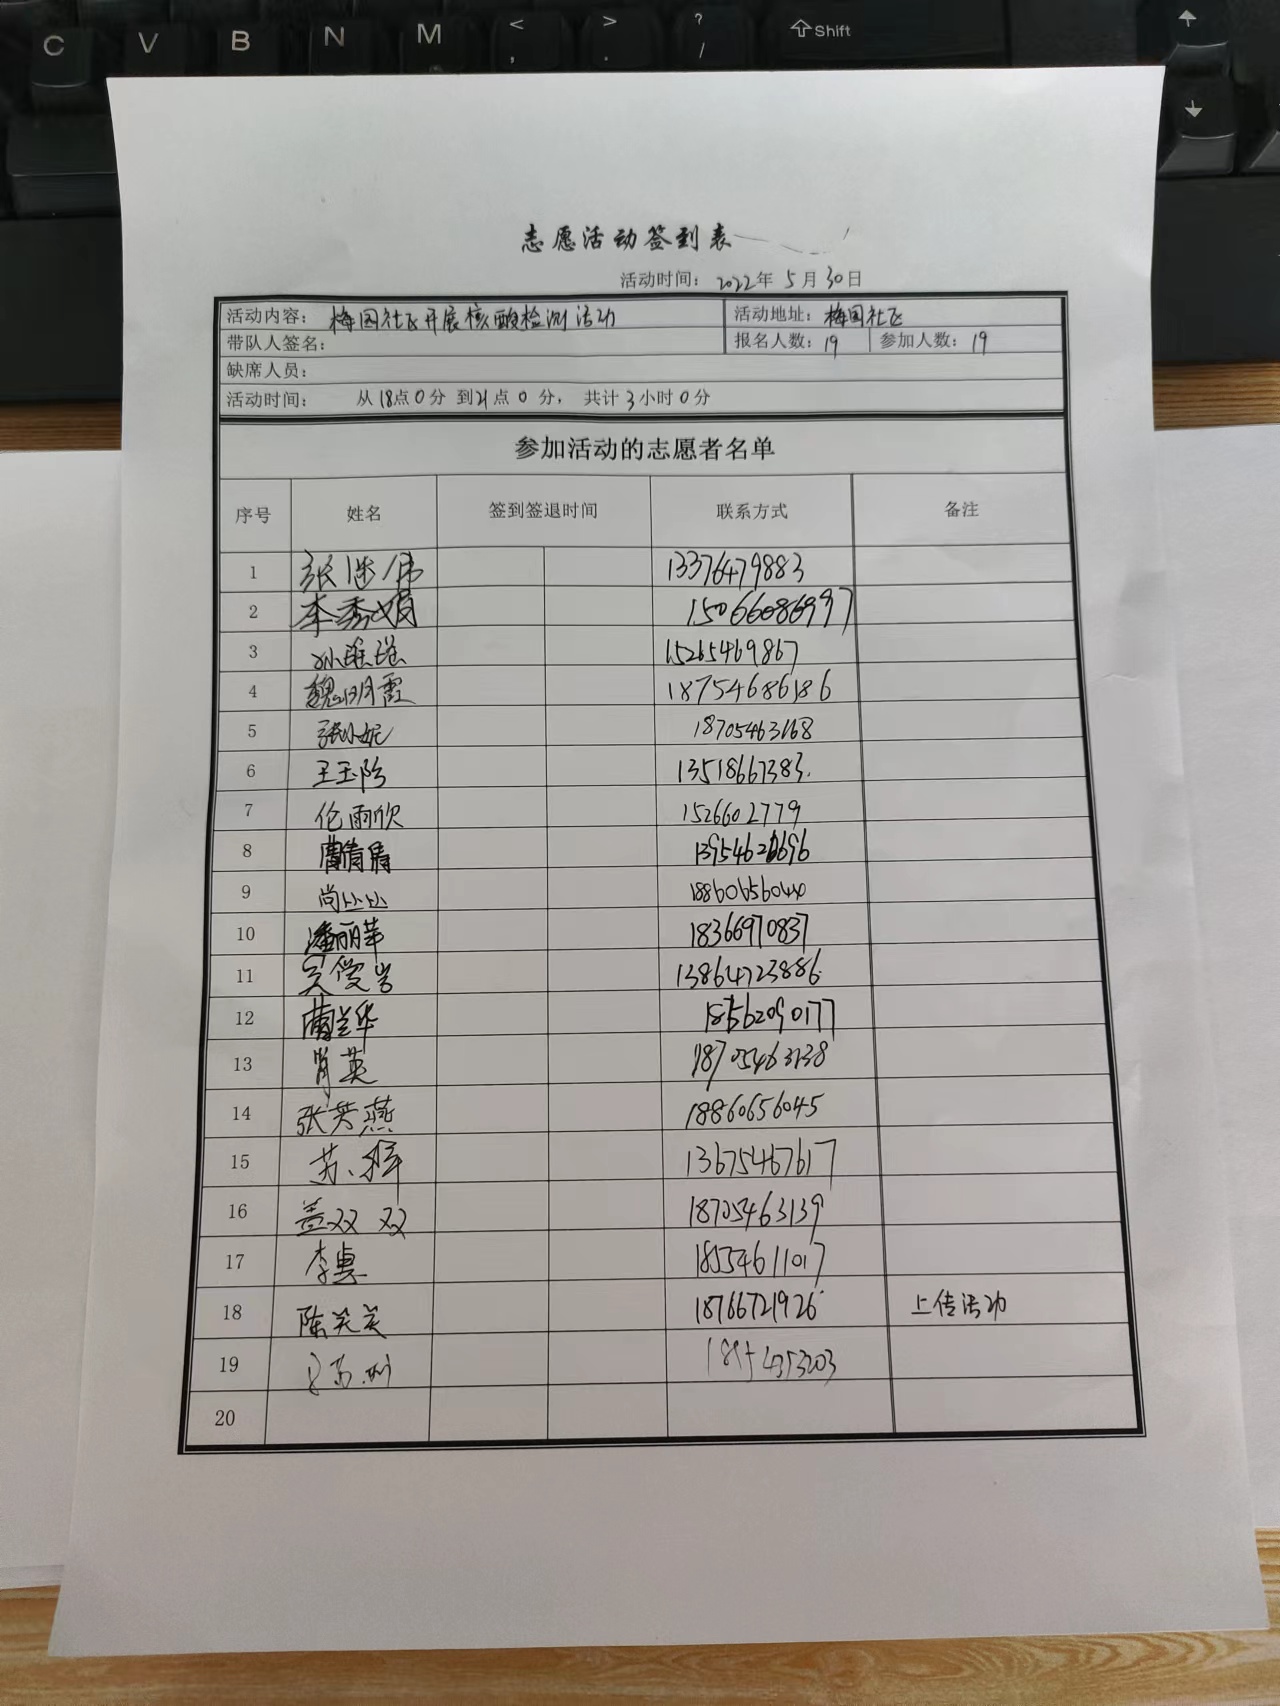 C V B N M < , > . ? / Shift
志愿活动签到表
活动时间： 2022年 5月 30日
活动内容： 梅园社区开展核酸检测活动 活动地址： 梅园社区
带队人签名： 报名人数： 19 参加人数： 19
缺席人员：
活动时间： 从18点0分 到21点0分， 共计3小时0分
参加活动的志愿者名单
序号 姓名 签到签退时间 联系方式 备注
1 13376479883
2 李秀娟 15066086997
3 15265469867
4 魏明霞 18754686186
5 张小妮 18705463168
6 王玉珍 13518667383
7 伦雨欣 1526602779
8 曹倩倩
9 尚丛丛 18860656044
10 潘丽华 18366970837
11 13864723886
12 曹兰华 18562090177
13 肖英 18705463138
14 张芳燕 18860656045
15 苏梓 13675467617
16 盖双双 18705463139
17 李惠 18554611017
18 陈关关 18766721926 上传活动
19
20